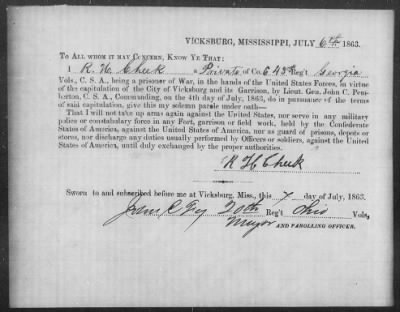 VICKSBURG, MISSISSIPPI, JULY 6th 1863.
TO ALL WHOM IT MAY CONCERN, KNOW YE THAT:
I R. H. Cheek a Private of Co. 43d Reg't Georgia
Vols., C. S. A., being a prisoner of War, in the hands of the United States Forces, in virtue
of the capitulation of the City of Vicksburg and its Garrison, by Lieut. Gen. John C. Pem-
berton, C. S. A., Commanding, on the 4th day of July, 1863, do in pursuance of the terms
of said capitulation, give this my solemn parole under oath—
That I will not take up arms again against the United States, nor serve in any military
police or constabulary force in any Fort, garrison or field work, held by the Confederate
States of America, against the United States of America, nor as guard of prisons, depots or
stores, nor discharge any duties usually performed by Officers or soldiers, against the United
States of America, until duly exchanged by the proper authorities.
R H Cheek
Sworn to and subscribed before me at Vicksburg, Miss., this 7 day of July, 1863.
C Fry 20th Reg't Ohio Vols,
Major AND PAROLLING OFFICER.